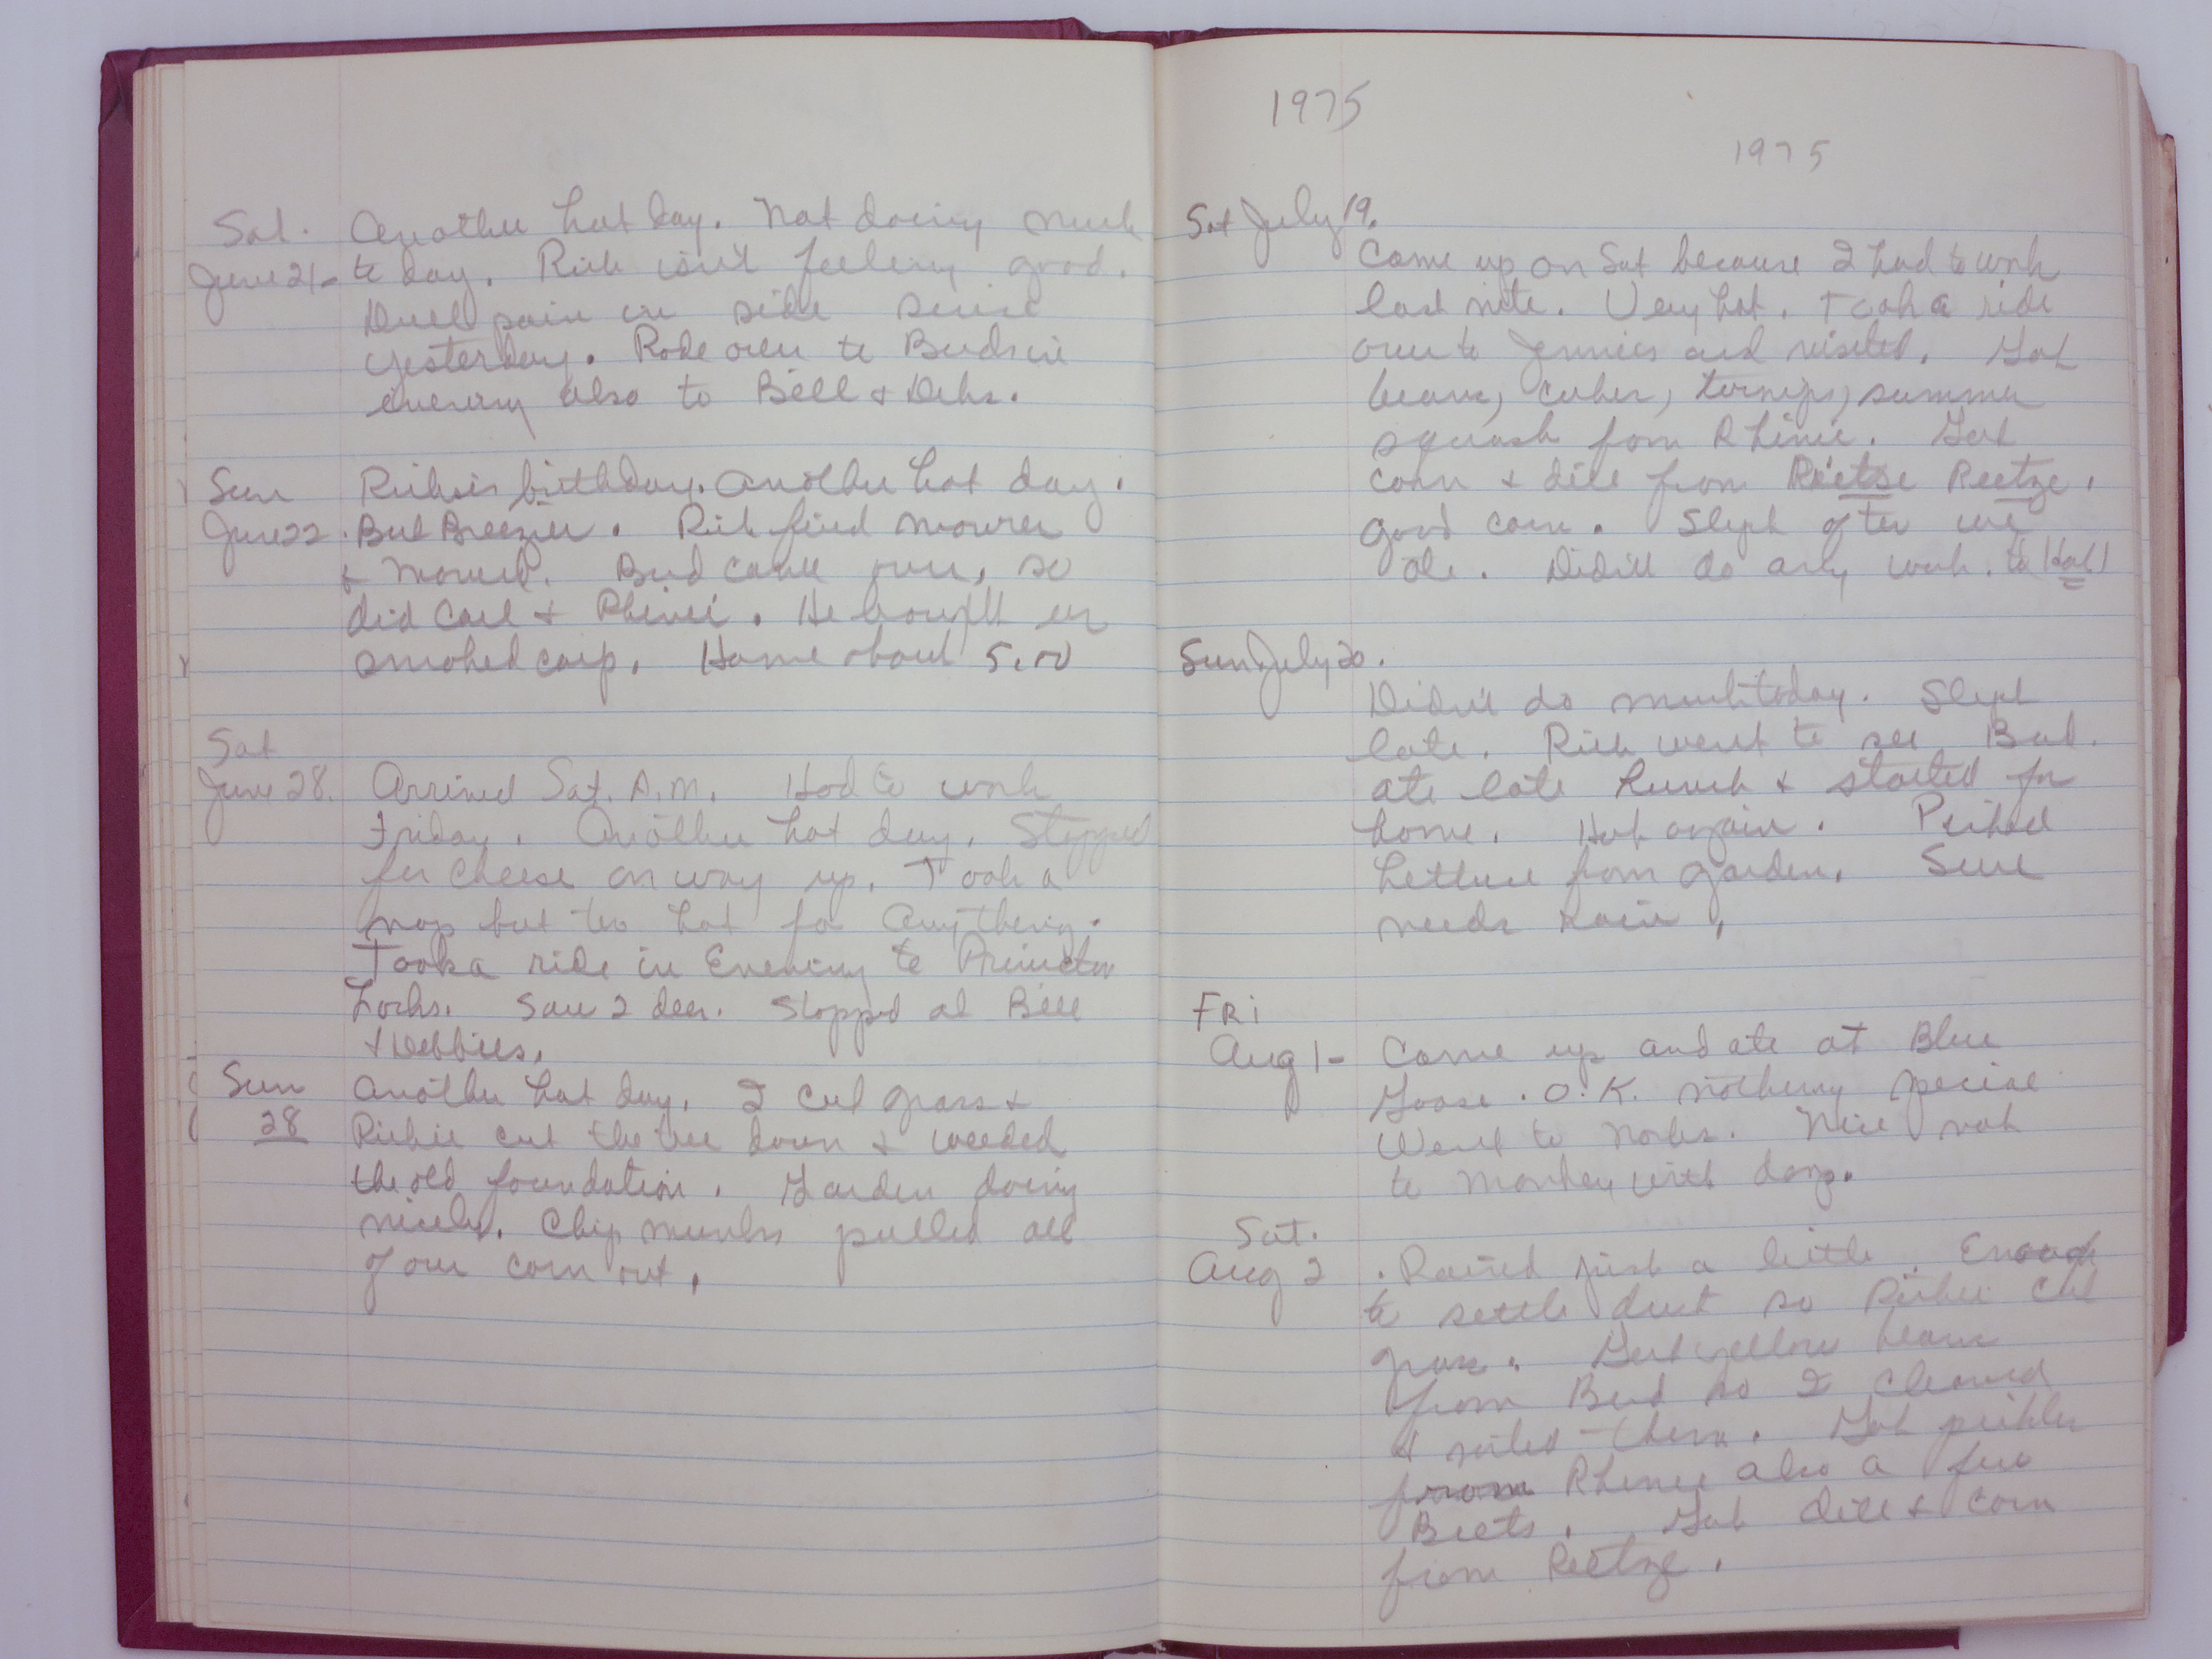 Sat. Another hot day. Not doing much
June 21- to day. Rich isn't feeling good.
Dull pain in side since
yesterday. Rode over to Buds in
evening also to Bill & Debs.
Sun Richie's birthday. Another hot day.
June 22. But Breezier. Rich fixed mower
& mowed. Bud came over, so
did Carl & Rhinie. He bought us
smoked carp. Home about 5.00
Sat
June 28. Arrived Sat. A.M. Had to work
Friday. Another hot day. Stopped
for cheese on way up. Took a
nap but too hot for anything.
Took a ride in Evening to Princeton
Locks. Saw 2 deer. Stopped at Bill
& Debbies.
Sun Another hot day. I cut grass &
28 Richie cut the tree down & weeded
the old foundation. Garden doing
nicely. Chip munks pulled all
of our corn out.
1975
1975
Sat July 19.
Came up on Sat because I had to work
last nite. Very hot. Took a ride
over to Jennies and visited. Got
beans, cukes, turnips, summer
squash from Rhinie. Got
corn & dill from Rietse Reetze.
good corn. Slept after we
ate. Didn't do any work. to Hot!
Sun July 20.
Didn't do much today. Slept
late. Rich went to see Bud.
ate late lunch & started for
home. Hot again. Picked
Lettuce from garden. Sure
needs rain.
FRI
Aug 1- Came up and ate at Blue
Goose. O.K. nothing special
Went to Norks. Nice not
to Monkey with dog.
Sat.
Aug 2. Rained just a little. Enough
to settle dust so Richie cut
grass. Got yellow beans
from Bud so I cleaned
& them. Got pickles
from Rhinie also a few
Beets. Got dill & corn
from Reetze.